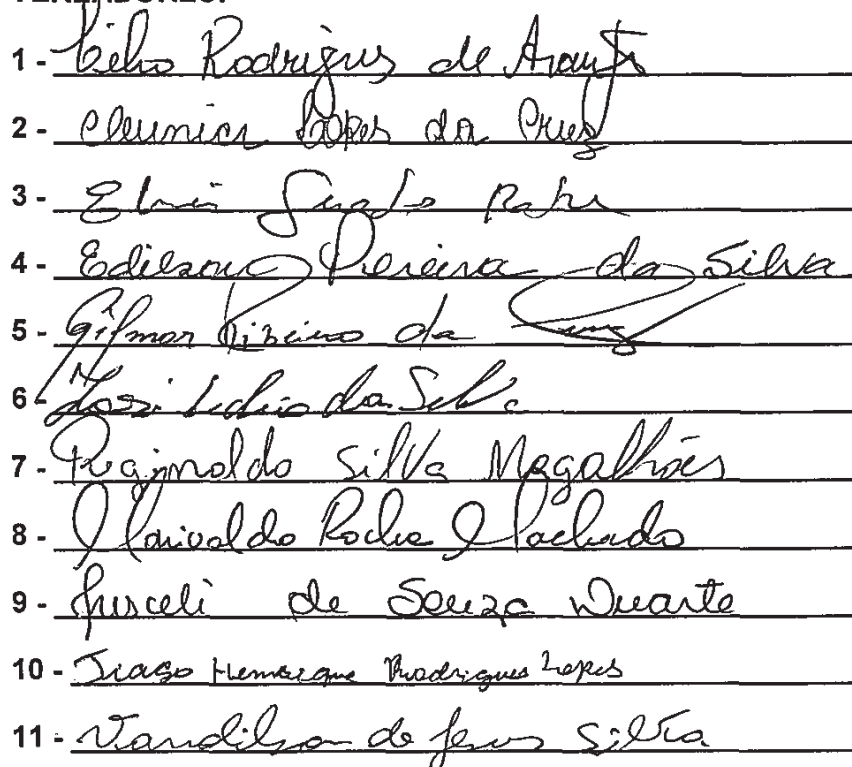 VEREADORES:
1 - Celso Rodrigues de Araujo
2 - Cleunice Lopes da Cruz
3 - 
4 - Edilson Pereira da Silva
5 - Gilmar Ribeiro da
6 - José da Silva
7 - Reginaldo Silva Magalhães
8 - Marivaldo Rocha Machado
9 - Jusceli de Souza Duarte
10 - Tiago Henrique Rodrigues Lopes
11 - Vandilson de Jesus Silva